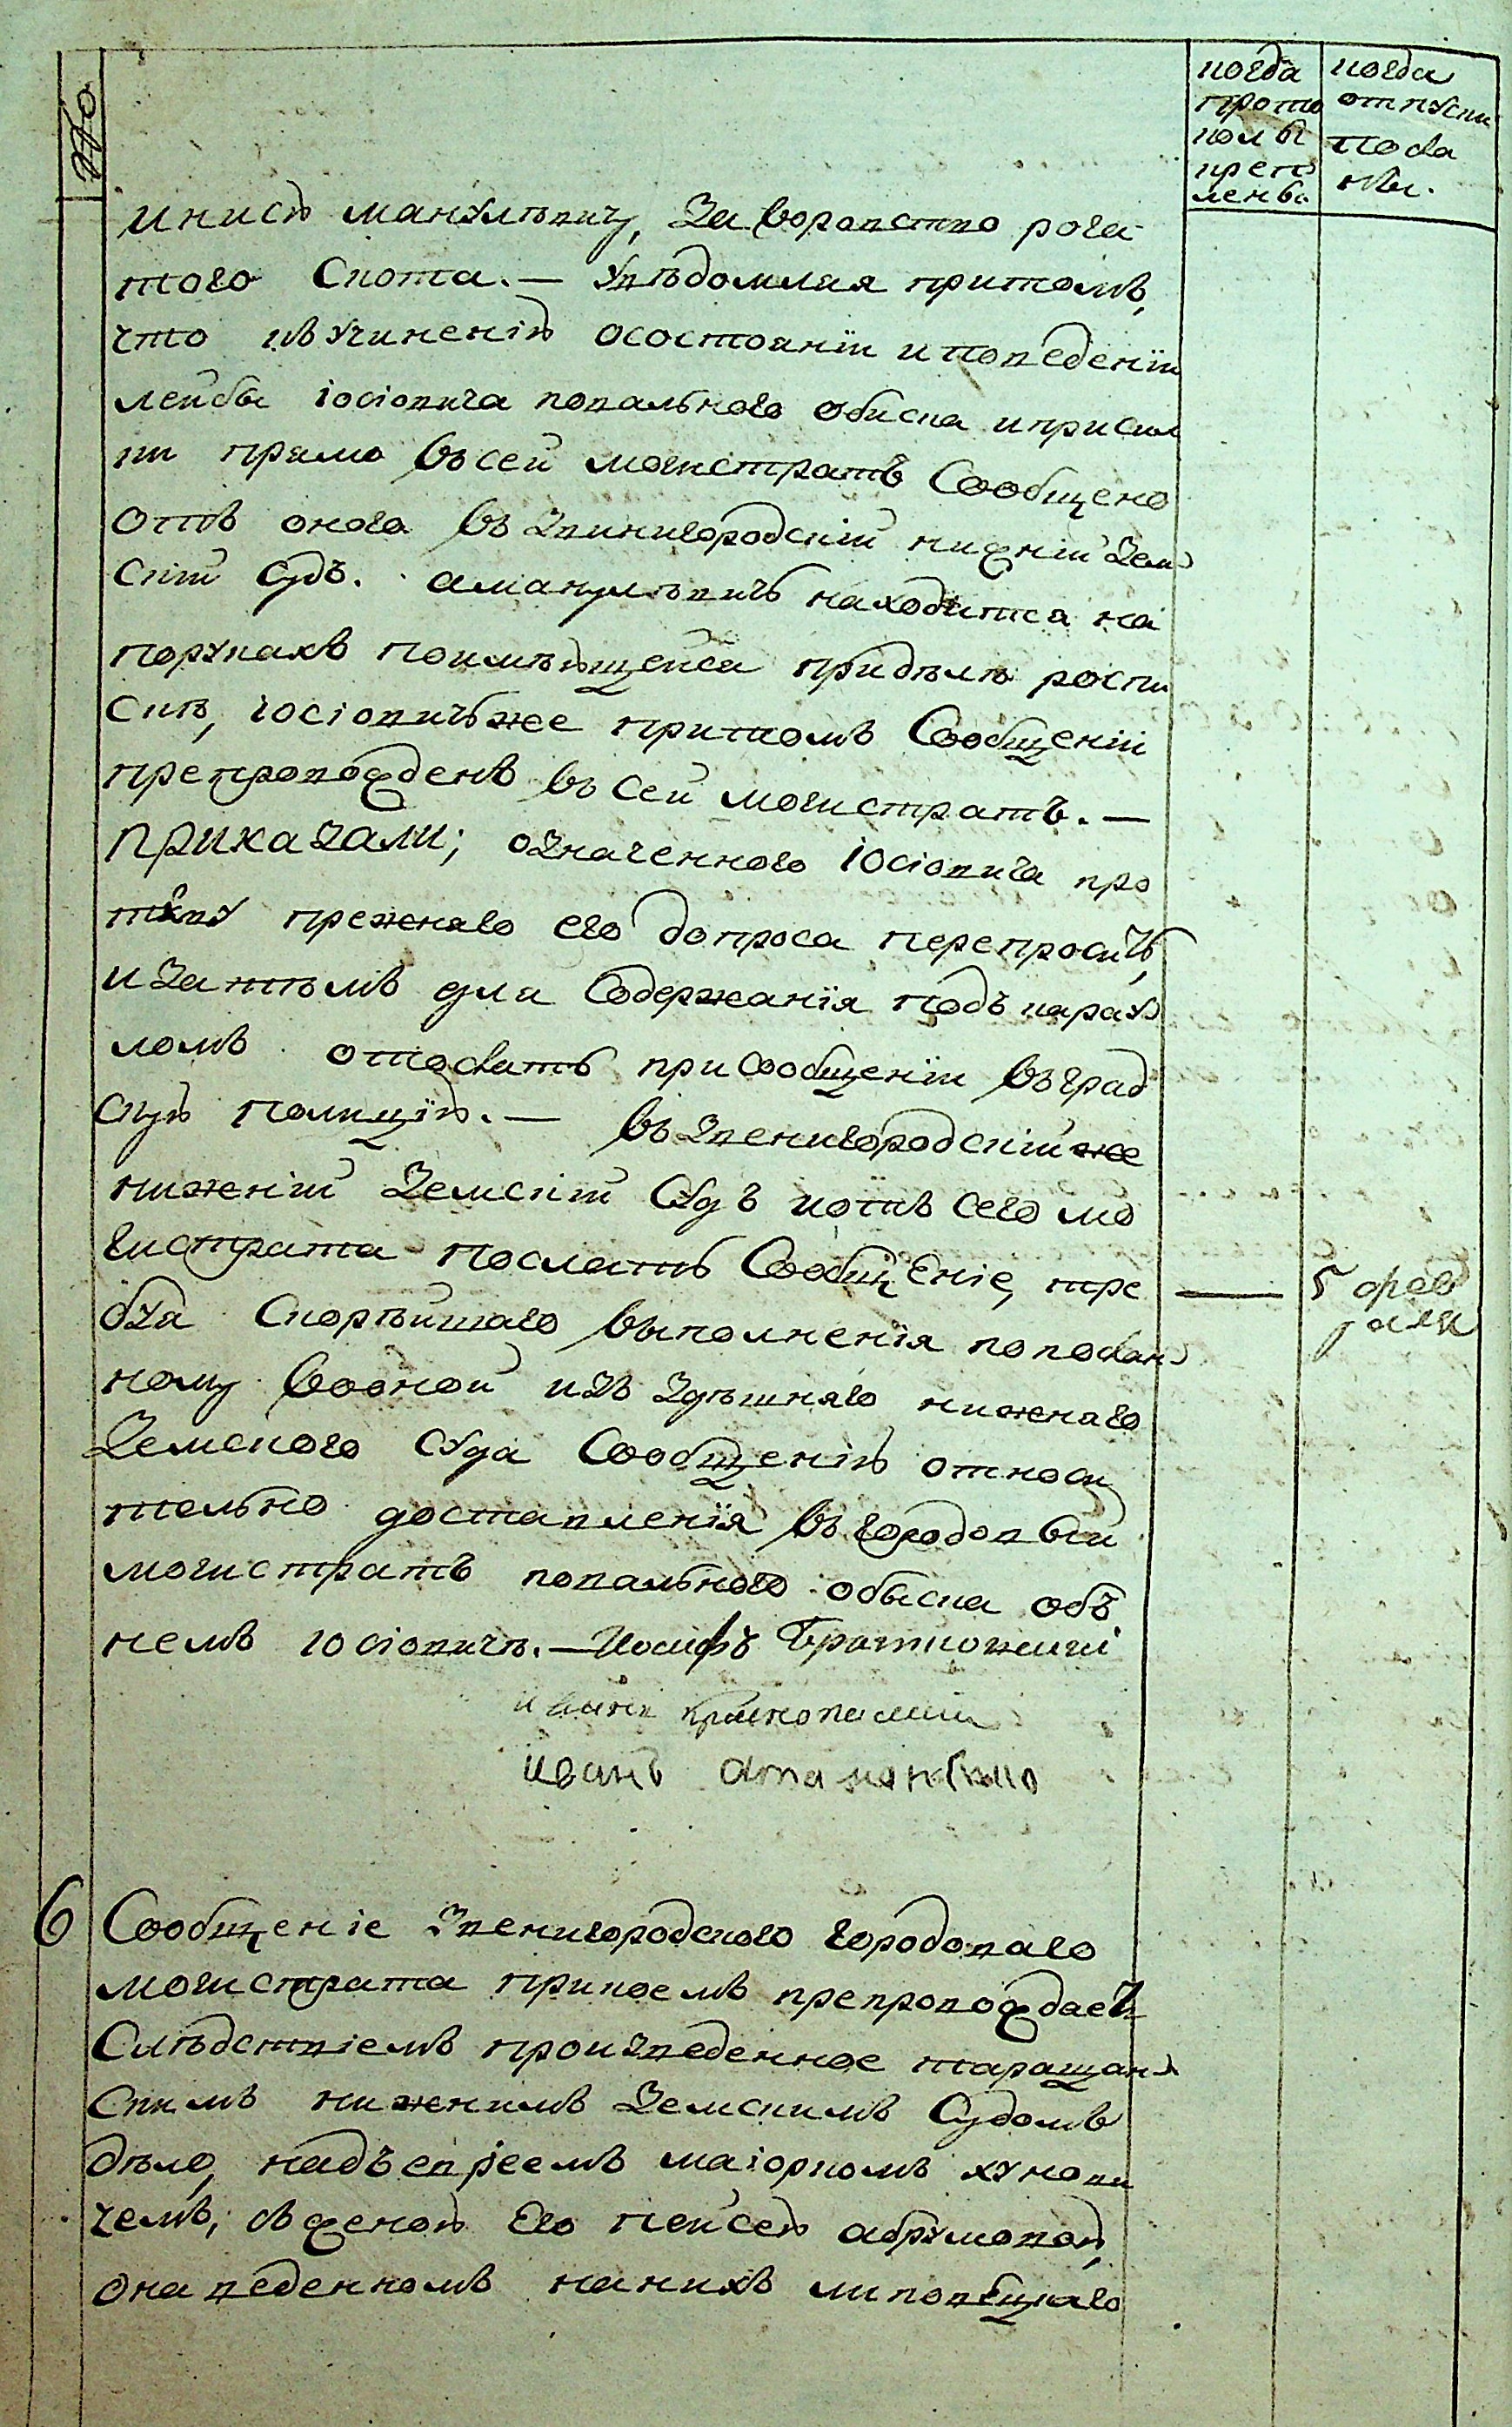 №
когда
прото
колы
крѣп
ленъ
когда
отпуски
пода
ны.
инисѣ манулѣвичу, За воровство рога
того Скота. — Увѣдомляя притомъ,
что къ учиненію осостояніи и поведеніи
лейбы іосіовича повального обыска и присил
ки прямо въ сей могистратъ Сообщено
отъ оного въ Звинигородскій нижній Зем
скій Судъ. аманулѣвичъ находится на
порукахъ поимѣющейся придѣлѣ роспи
скѣ, іосіовичъ же притомъ Сообщеніи
препровожденъ въ сей могистратъ. —
Приказали; означенного іосіовича про
тиву прежняго его допроса перепросить,
и затѣмъ для Содержанія подъ карау
ломъ отодать при Сообщеніи въ град
скую полицію. — въ Звенигородскій же
нижній Земскій Судъ и отъ сего мо
гистрата послать Сообщеніе, тре
буя Скорѣйшаго выполненія поподан
ному вооной изъ здѣшняго нижняго
Земского Суда Сообщенію относи
тельно доставленія въ городовый
могистратъ повального обыска объ
немъ іосіовичѣ. — Иосифъ Братковскій
5 фев
раля
Иванъ
иванъ
6 Сообщеніе Звенигородского городоваго
могистрата прикоемъ препровождаетъ
Слѣдствіемъ произведенное таращан
скимъ нижнимъ Земскимъ Судомъ
дѣло, надъ евреемъ маіоркомъ хунови
чемъ, съ женою Его пейсею абрумовою,
онаведенномъ нанихъ липовецкаго